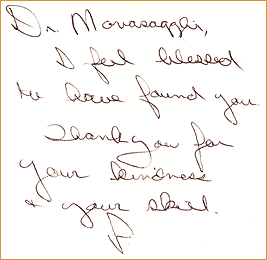 Dr. Movasagghi,
I feel blessed
to have found you.
Thank you for
your kindness
& your skill.
P